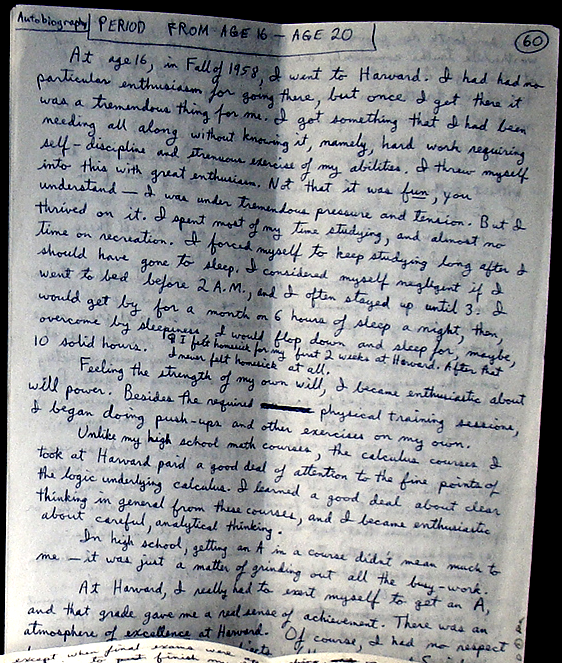 Autobiography PERIOD FROM AGE 16 - AGE 20
60
At age 16, in Fall of 1958, I went to Harvard. I had had no
particular enthusiasm for going there, but once I got there it
was a tremendous thing for me. I got something that I had been
needing all along without knowing it, namely, hard work requiring
self-discipline and strenuous exercise of my abilities. I threw myself
into this with great enthusiasm. Not that it was fun, you
understand — I was under tremendous pressure and tension. But I
thrived on it. I spent most of my time studying, and almost no
time on recreation. I forced myself to keep studying long after I
should have gone to sleep. I considered myself negligent if I
went to bed before 2 A.M., and I often stayed up until 3. I
would get by for a month on 6 hours of sleep a night, then,
overcome by sleepiness, I would flop down and sleep for, maybe,
10 solid hours. I felt homesick for my first 2 weeks at Harvard. After that
I never felt homesick at all.
Feeling the strength of my own will, I became enthusiastic about
will power. Besides the required physical training sessions,
I began doing push-ups and other exercises on my own.
Unlike my high school math courses, the calculus courses I
took at Harvard paid a good deal of attention to the fine points of
the logic underlying calculus. I learned a good deal about clear
thinking in general from these courses, and I became enthusiastic
about careful, analytical thinking.
In high school, getting an A in a course didn't mean much to
me — it was just a matter of grinding out all the busy-work.
At Harvard, I really had to exert myself to get an A,
and that grade gave me a real sense of achievement. There was an
atmosphere of excellence at Harvard. Of course, I had no respect
except when final exams were